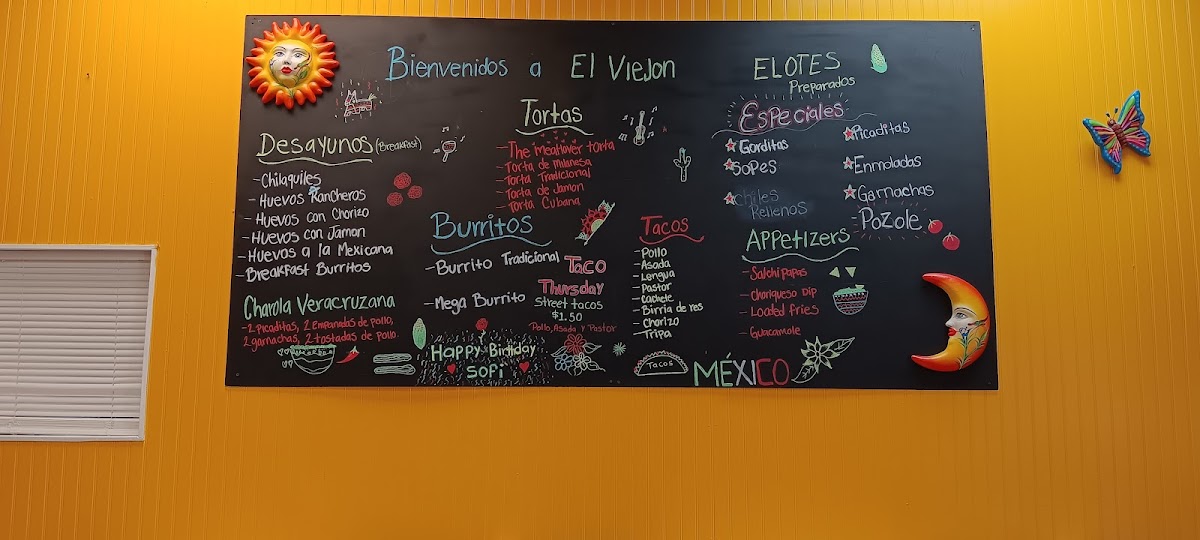 Bienvenidos a El Viejon
Desayunos (Breakfast)
-Chilaquiles
-Huevos Rancheros
-Huevos con Chorizo
-Huevos con Jamon
-Huevos a la Mexicana
-Breakfast Burritos
Charola Veracruzana
-2 Picaditas, 2 Empanadas de pollo,
2 garnachas, 2 tostadas de pollo
Tortas
-The meatlover torta
-Torta de milanesa
-Torta Tradicional
-Torta de Jamon
-Torta Cubana
Burritos
-Burrito Tradicional
-Mega Burrito
Taco
Thursday
Street tacos
$1.50
Pollo, Asada y Pastor
Happy Birthday
Sofi
Tacos
-Pollo
-Asada
-Lengua
-Pastor
-Cachete
-Birria de res
-Chorizo
-Tripa
Tacos
ELOTES
Preparados
Especiales
Gorditas
Sopes
Chiles
Rellenos
Picaditas
Enmoladas
Garnachas
Pozole
Appetizers
-Salchipapas
-Choriqueso Dip
-Loaded fries
-Guacamole
MÉXICO